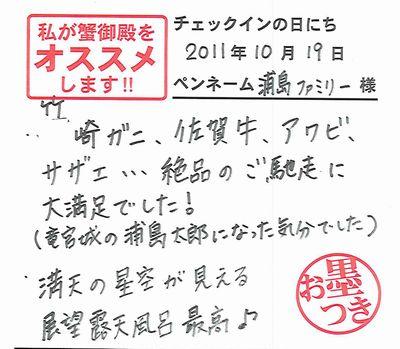 私が蟹御殿を
オススメ
します!!
チェックインの日にち
2011年10月19日
ペンネーム 浦島ファミリー 様
竹
崎ガニ、佐賀牛、アワビ、
サザエ…絶品のご馳走に
大満足でした!
(竜宮城の浦島太郎になった気分でした)
満天の星空が見える
展望露天風呂最高♪
お墨つき